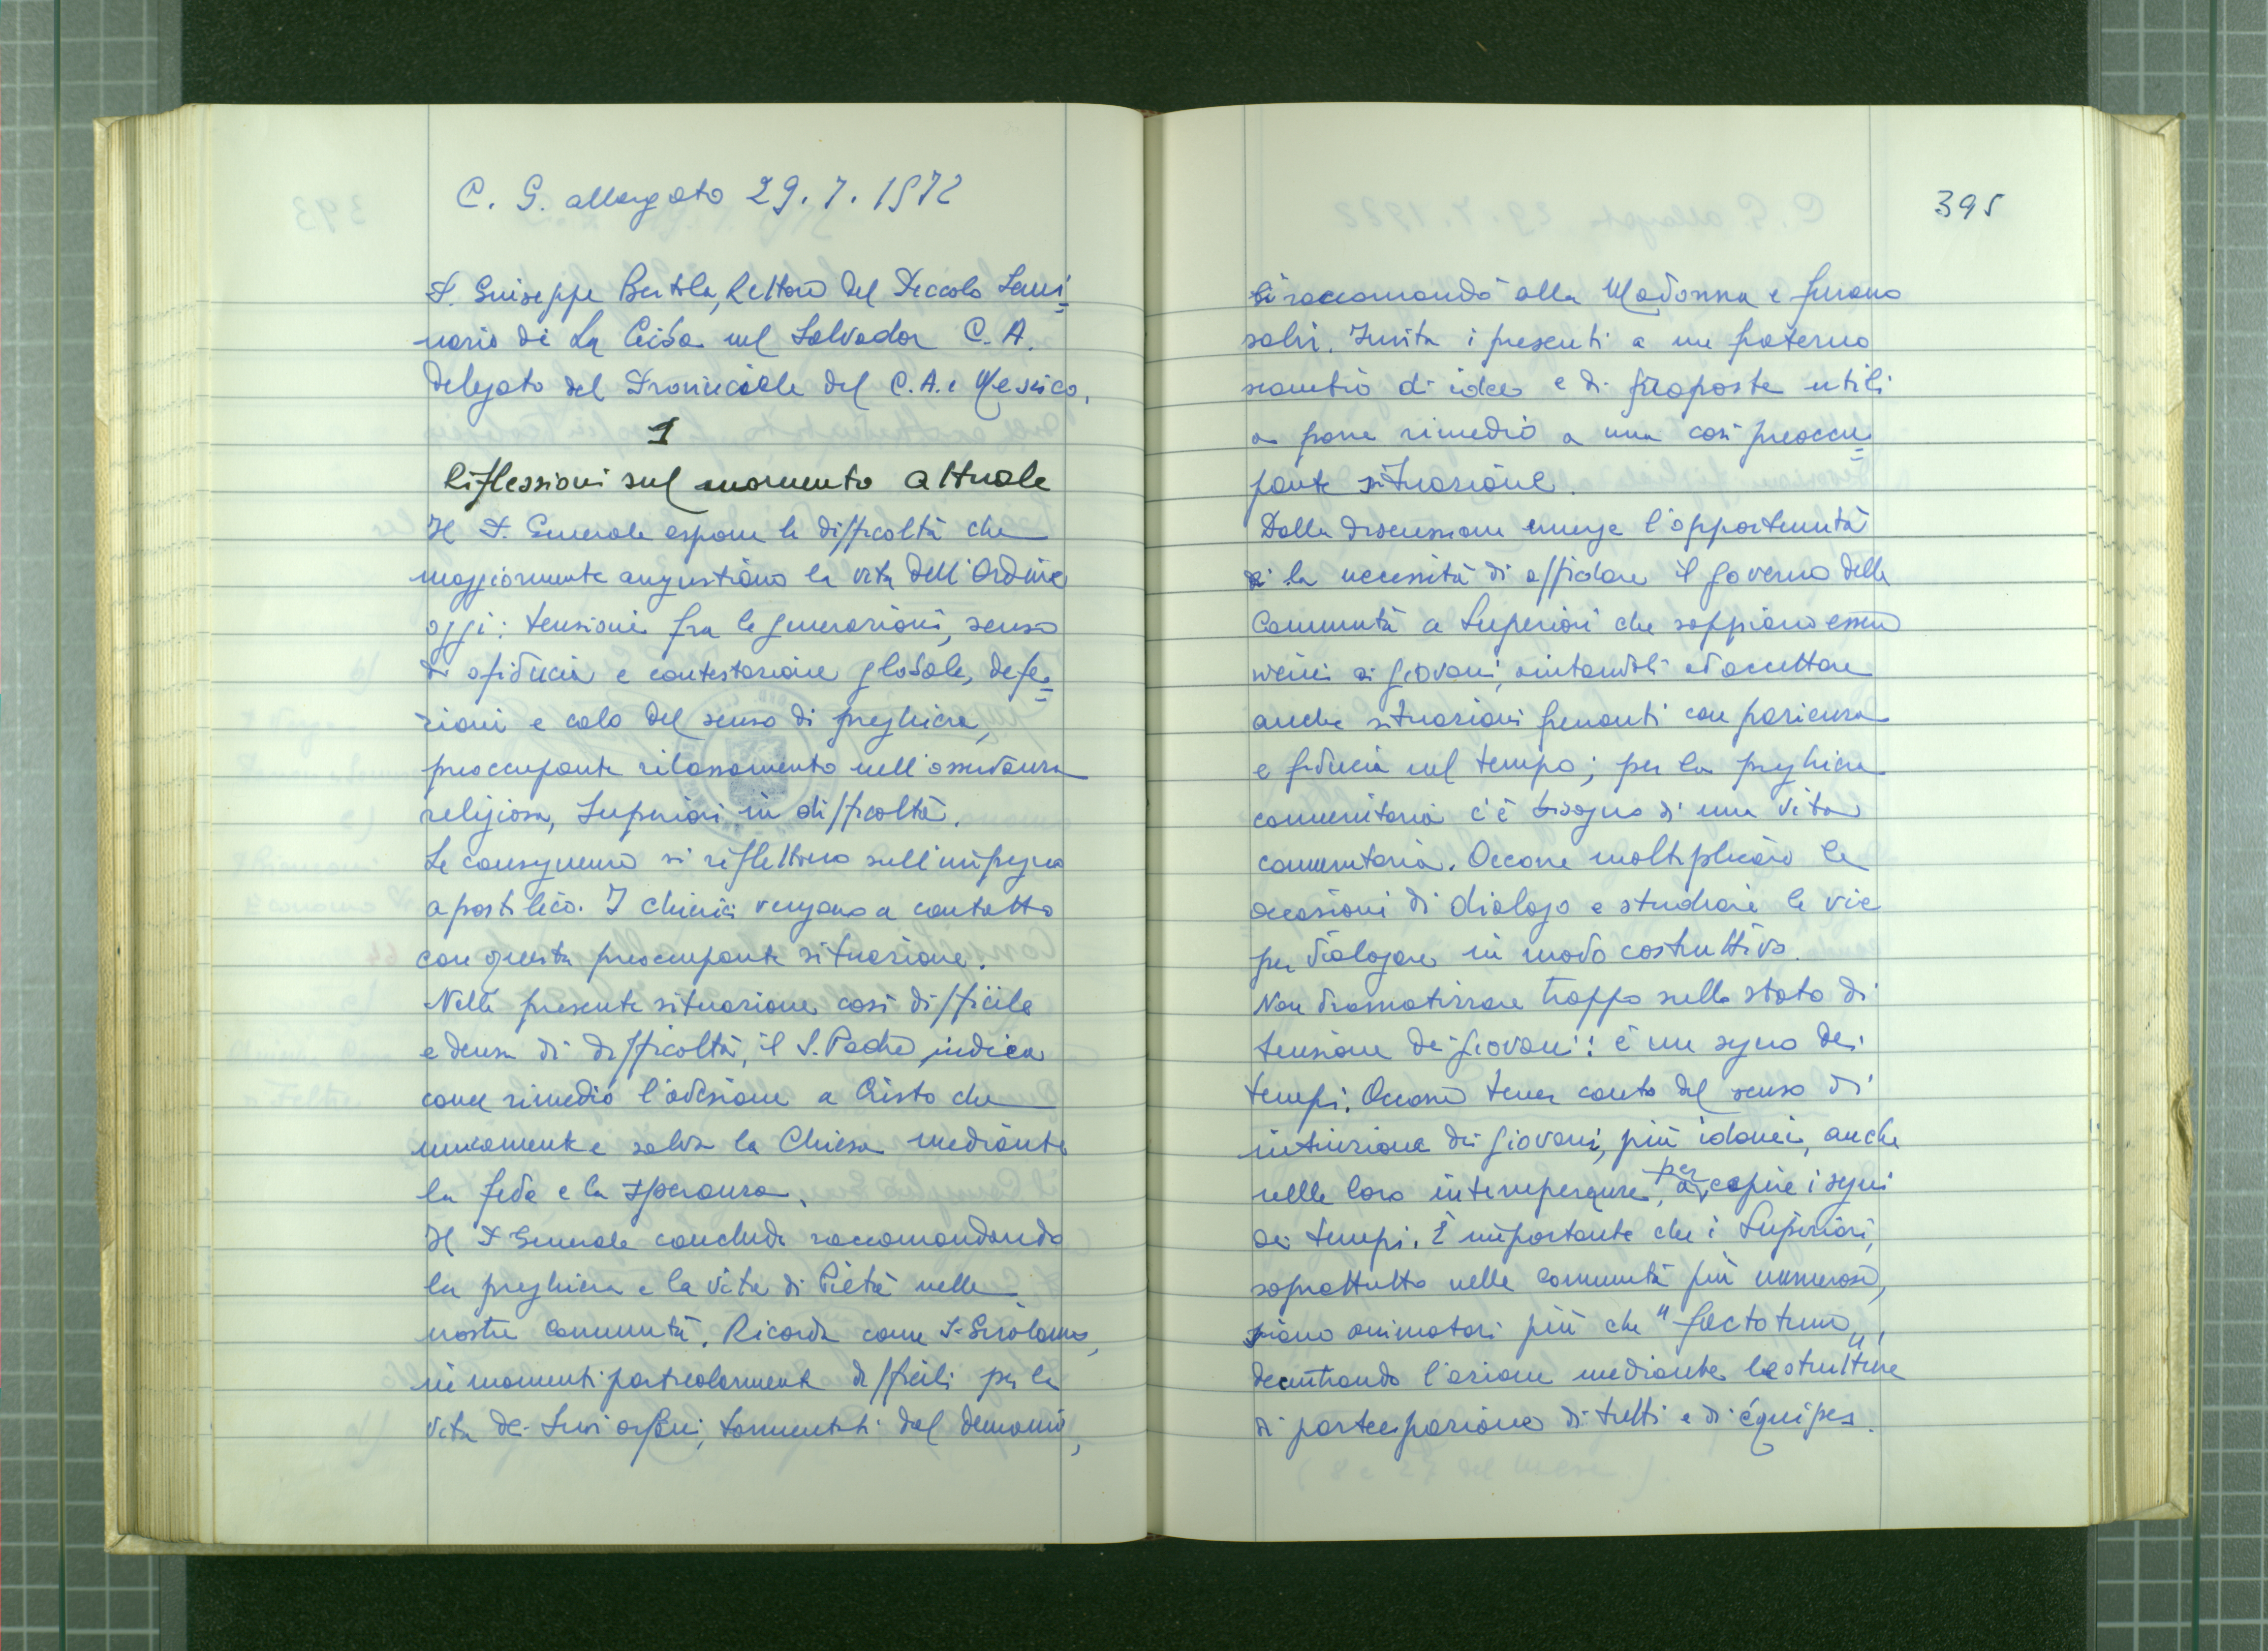 C. G. allargato 29.7.1972
P. Giuseppe Bertola, Rettore del Piccolo Semi=
nario di La Ceiba nel Salvador C. A.
Delegato del Provinciale del C.A. e Messico.
1
Riflessioni sul momento attuale
Il P. Generale espone le difficoltà che
maggiormente angustiano la vita dell'Ordine
oggi: tensioni fra le generazioni, senso
di sfiducia e contestazione globale, defe=
zioni e calo del senso di preghiera,
preoccupante rilassamento nell'osservanza
religiosa, Superiori in difficoltà.
Le conseguenze si riflettono sull'impegno
apostolico. I chierici vengono a contatto
con questa preoccupante situazione.
Nella presente situazione così difficile
e densa di difficoltà, il S. Padre indica
come rimedio l'adesione a Cristo che
unicamente salva la Chiesa mediante
la fede e la speranza.
Il P. Generale conclude raccomandando
la preghiera e la vita di Pietà nelle
nostre Comunità. Ricorda come S. Girolamo,
in momenti particolarmente difficili per la
vita dei suoi orfani, tormentati dal demonio,
395
li raccomandò alla Madonna e furono
salvi. Invita i presenti a un fraterno
scambio di idee e di proposte utili
a porre rimedio a una così preoccu=
pante situazione.
Dalla discussione emerge l'opportunità
e la necessità di affidare il governo delle
Comunità a Superiori che sappiano essere
vicini ai giovani, aiutandoli ad accettare
anche situazioni frenanti con pazienza
e fiducia nel tempo; per la preghiera
comunitaria c'è bisogno di una vita
comunitaria. Occorre moltiplicare le
occasioni di dialogo e studiare le vie
per dialogare in modo costruttivo.
Non drammatizzare troppo sullo stato di
tensione dei giovani: è un segno dei
tempi. Occorre tener conto del senso di
intuizione dei giovani, più idonei, anche
nelle loro intemperanze, per capire i segni
dei tempi. È importante che i Superiori,
soprattutto nelle Comunità più numerose,
siano animatori più che "factotum",
decentrando l'azione mediante le strutture
di partecipazione di tutti e di équipes.